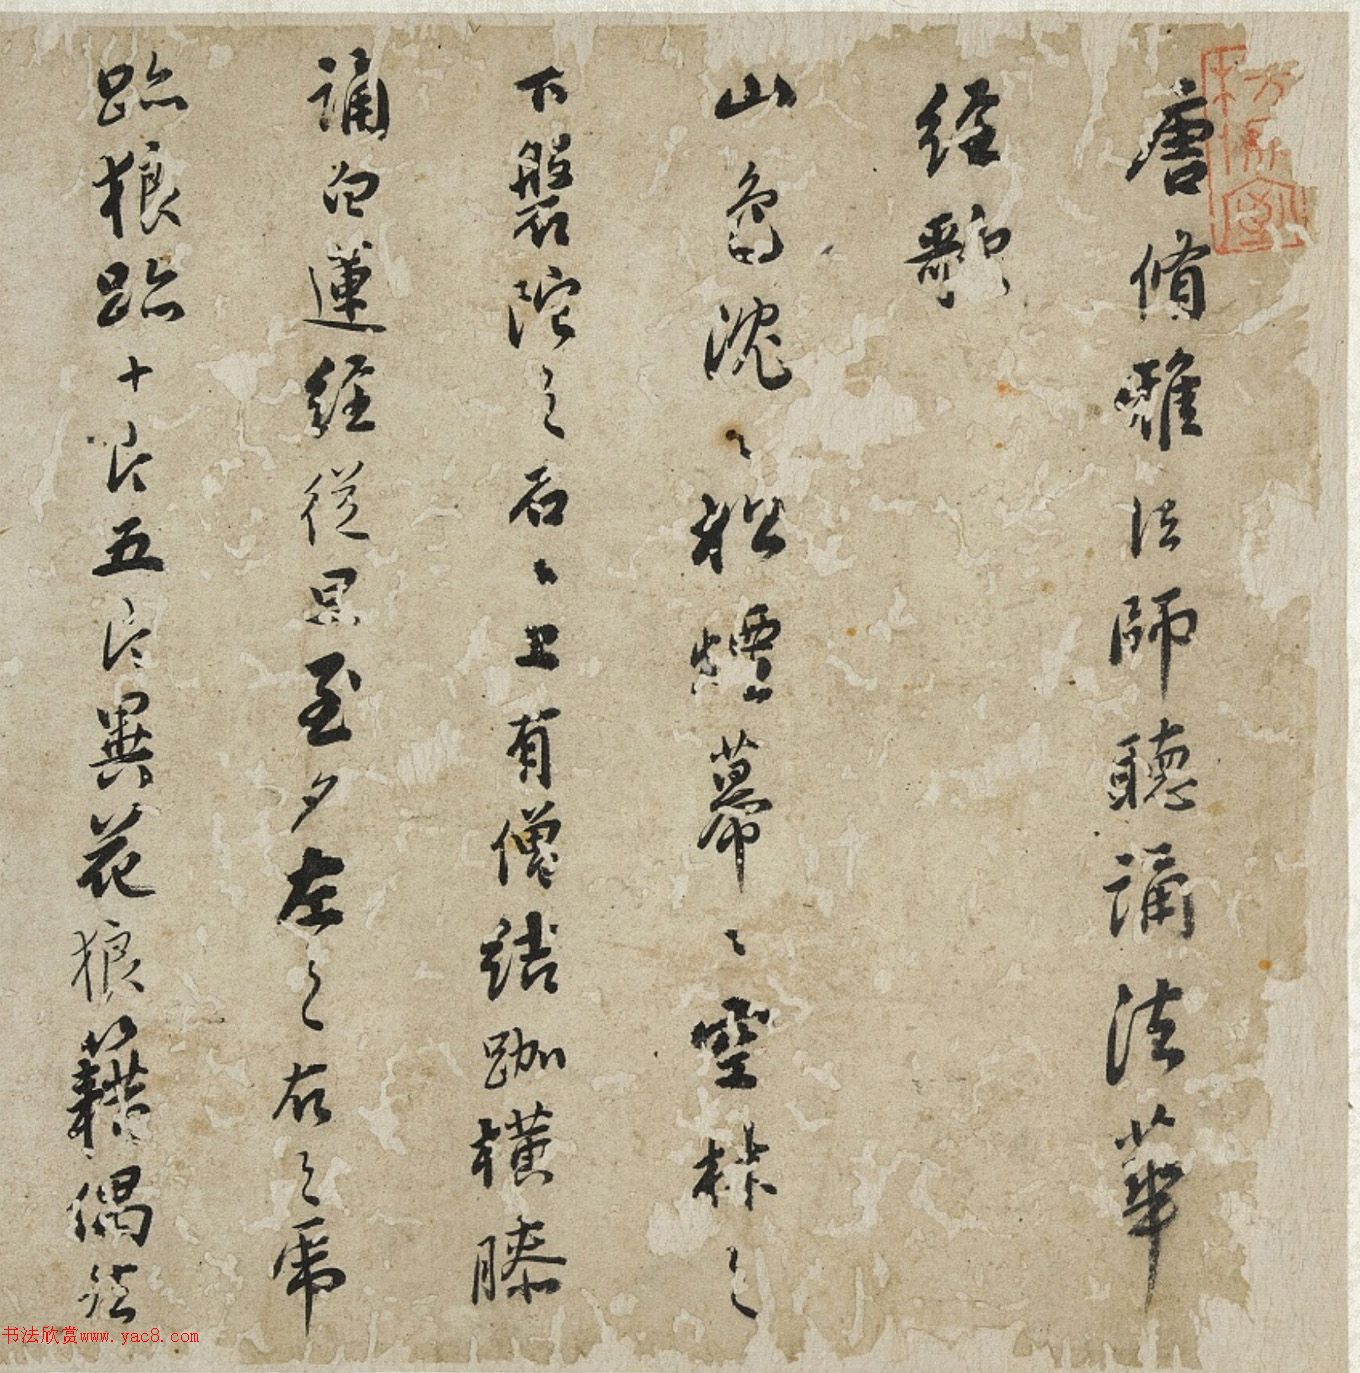 唐脩雅法師聽誦法華
经歌
山色沈〻松煙幕〻空林之
下盤陀之石〻上有僧結跏橫膝
誦白蓮经從旦至夕左之右之席
跡狼跡十片五片異花狼藉偶然
书法欣赏www.yac8.com